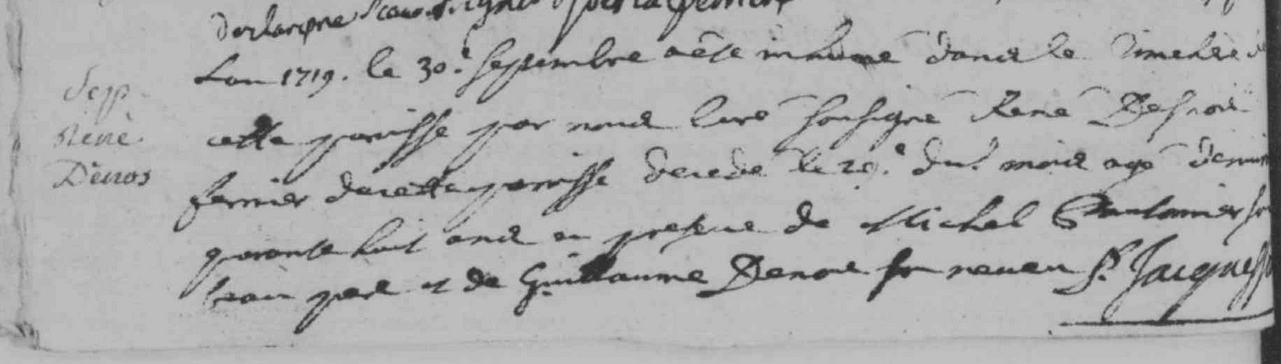 Sep.
René
Denos
Lan 1719. le 30e. septembre a ete inhumé dans le Cimetiere de
cette parroisse par nous curé soussigné René
fermier de cette parroisse decedé le 29e. du. mois agé d'environ
quarante huit ans en presence de Michel
beau pere et de Guillaume Denos son neveu P. Jacques